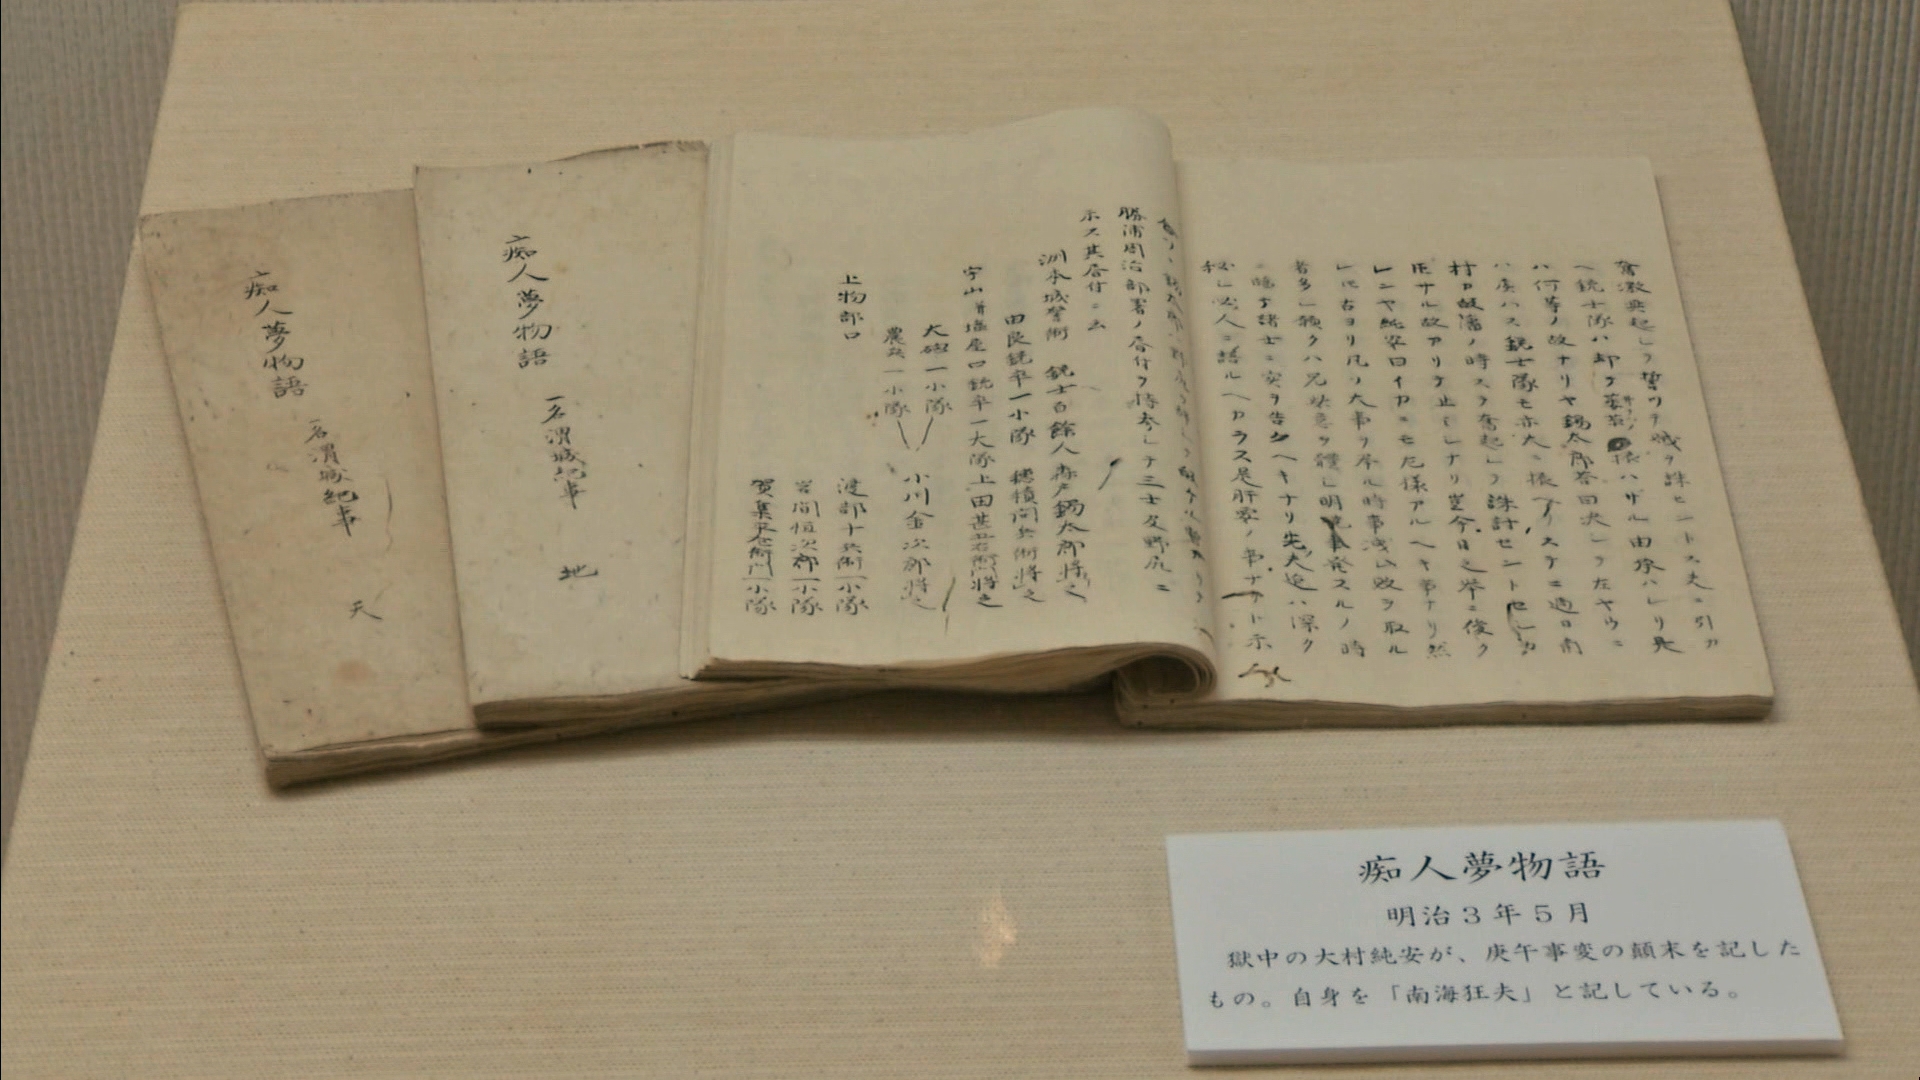 痴人夢物語
一名渭城紀事
天
痴人夢物語
一名渭城紀事
地
奮激興起シテ誓ツテ城ヲ誅セントス夫ニ引カ
ヘ銃士隊ハ却テ
ハ何等ノ故ナリヤ錫太郎答曰決シテ左ヤウニ
ハ虞ハス銃士隊モ亦大ニ振
村カ故藩ノ時スラ奮起シテ誅討セント
サル故アリテ止シナリ豈今日之挙ニ後ク
レンヤ純安曰イカニモ左様アルヘキ事ナリ然
レ古ヨリ凡ソ大事ヲ挙ル時事洩レ敗ヲ取ル
者多シ願クハ兄
諸士ニ実ヲ告クヘキナリ先夫迄ハ深ク
秘シ必人ニ語ルヘカラス是肝要ノ事ナリト示
勝浦周治部署ノ居付ヲ持参シテ三士及野尻ニ
示ス其居付ニ云
洲本城警衛 銃士百餘人 森戸錫太郎将之
由良銃卒一小隊 穂積間兵衛将之
宇山并塩屋口銃卒一大隊上田甚五右衛門将之
大砲一小隊
農兵一小隊
小川金次郎将之
上物部口
渡部十兵衛一小隊
岩間恒次郎一小隊
賀集平右衛門一小隊
痴人夢物語
明治3年5月
獄中の大村純安が、庚午事変の顛末を記した
もの。自身を「南海狂夫」と記している。